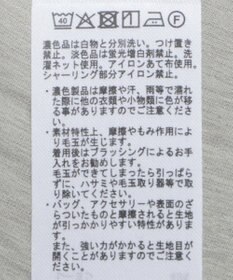 40
濃色品は白物と分別洗い。つけ置き
禁止。淡色品は蛍光増白剤禁止。洗
濯ネット使用。アイロンあて布使用。
シャーリング部分アイロン禁止。
・濃色製品は摩擦や汗、雨等で濡れ
た際に他の衣類や小物類に色が移
る事がありますのでご注意くださ
い。
・素材特性上、摩擦やもみ作用によ
り毛玉が生じます。
着用後はブラッシングによるお手
入れをお勧めします。
毛玉ができてしまったら引っぱら
ずに、ハサミや毛玉取り器等で取
り除いてください。
・バッグ、アクセサリーや表面のざ
らついたものと摩擦されると生地
が引っかかりやすい特性がありま
す。
また、強い力がかかると生地目が
開くことがありますのでご注意く
ださい。